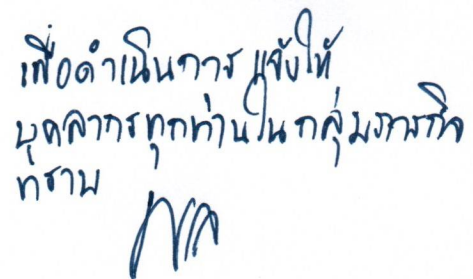 เพื่อดำเนินการ แจ้งให้
บุคลากรทุกท่านในกลุ่มภารกิจ
ทราบ